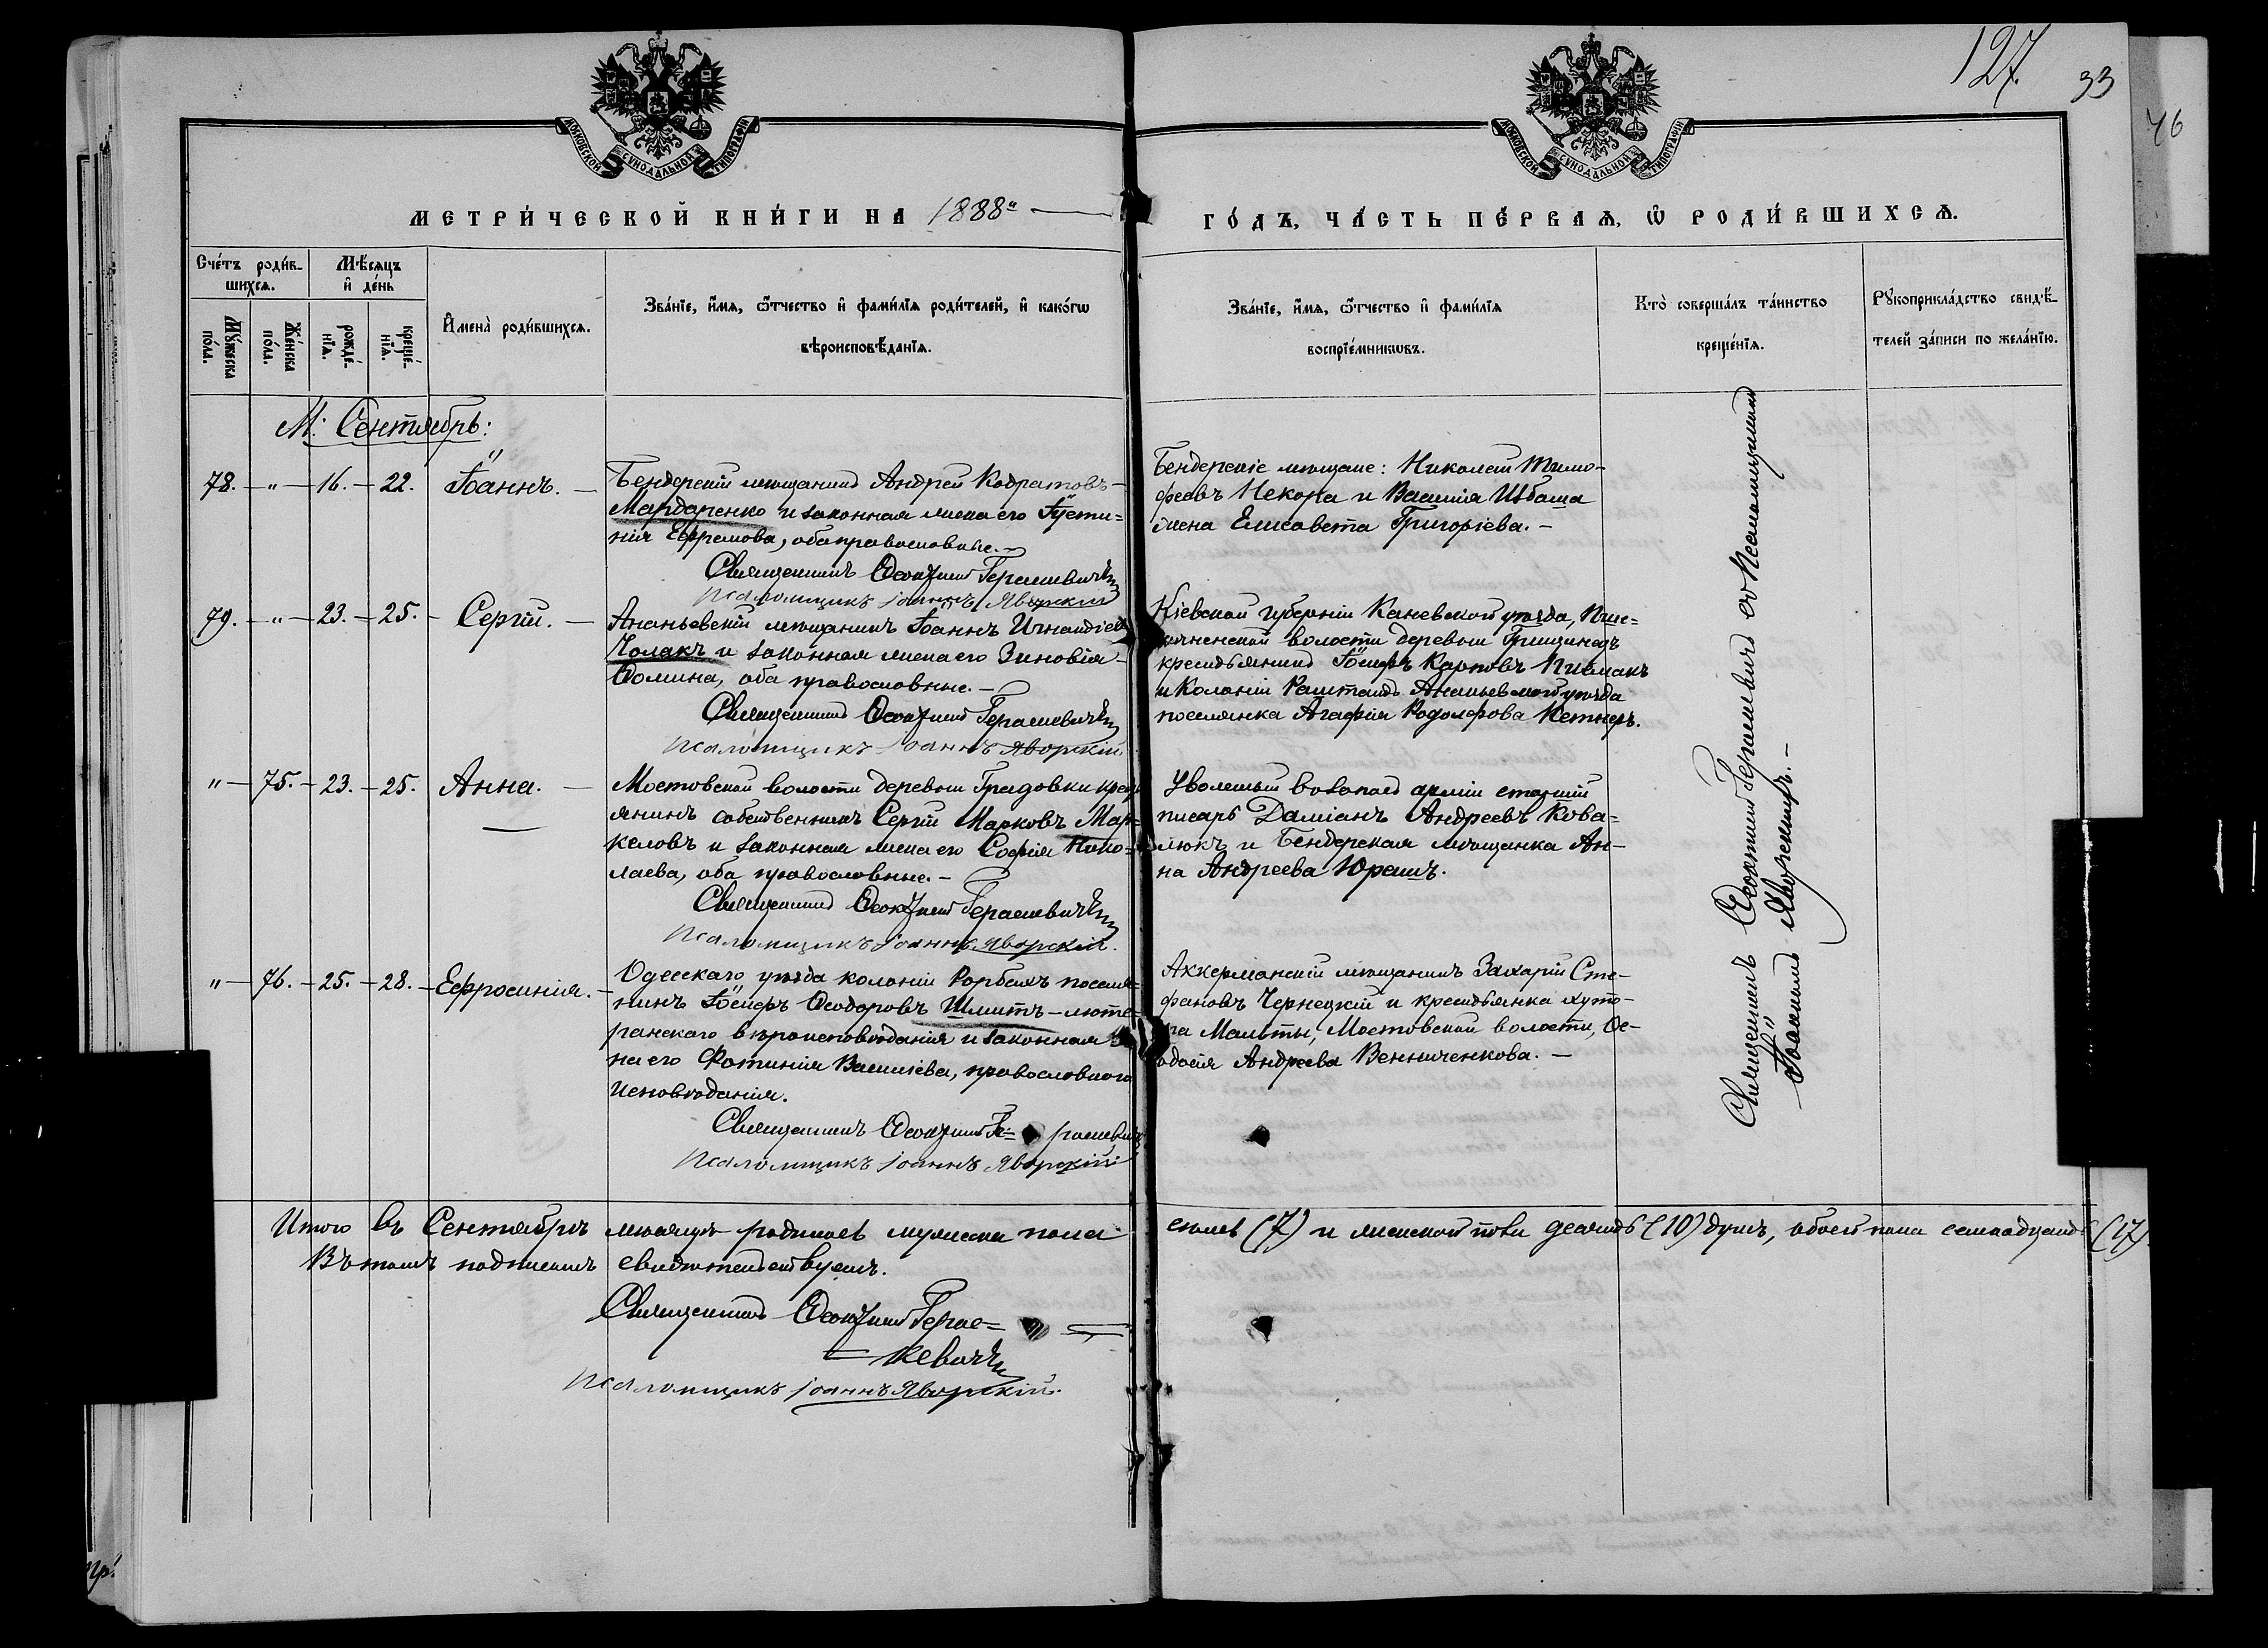 127.
33
76
МОСКОВСКОЙ СУНОДАЛЬНОЙ ТИПОГРАФІИ
МОСКОВСКОЙ СУНОДАЛЬНОЙ ТИПОГРАФІИ
МЕТРИ́ЧЕСКОЙ КНИ́ГИ НА 1888 ГО́ДЪ, ЧА́СТЬ ПЕ́РВАѦ, Ѡ РОДИ́ВШИХСѦ.
Сче́тъ роди́в-
шихсѧ.
Мѣ́сяцъ
и҆ де́нь
Мꙋ́жеска
по́ла.
Же́нска
по́ла.
рожде́-
нїѧ.
креще́-
нїѧ.
И҆мена̀ роди́вшихсѧ.
Зва́нїе, и҆́мѧ, ѻ҆́тчество и҆ фами́лїѧ роди́телей, и҆ како́гѡ
вѣроисповѣ́данїѧ.
Зва́нїе, и҆́мѧ, ѻ҆́тчество и҆ фами́лїѧ
воспрїе́мникѡвъ.
Кто̀ соверша́лъ та́инство
креще́нїѧ.
Рꙋкоприкла́дство свидѣ́-
телей за́писи по жела́нїю.
М: Сентябрь:
78. — " — 16. — 22. Іоаннъ. —
Бендерскій мѣщанинъ Андрей Кодратовъ
Мардаренко и законная жена его Іусти=
нія Ефремова, оба православные. —
Священникъ Ѳеоктистъ Герашевичъ
Псаломщикъ Іоаннъ Яворскій
Бендерскіе мѣщане: Николай Тимо-
феевъ Некора и Василія Шбаша
жена Елисавета Григоріева. —
79. — " — 23. — 25. — Сергій. —
Ананьевскій мѣщанинъ Іоаннъ Игнатіевъ
Чолакъ и законная жена его Зиновія
Ѳомина, оба православные. —
Священникъ Ѳеоктистъ Герашевичъ
Псаломщикъ Іоаннъ Яворскій
Кіевской губерніи Каневскаго уѣзда, Пши=
чненской волости деревни Грищинецъ
крестьянинъ Іосифъ Карповъ Письмакъ
и Колоніи Раштатъ Ананьевскаго уѣзда
поселянка Агафія Родолфова Кетнеръ.
" — 75. — 23. — 25. Анна. —
Мостовской волости деревни Градовки крест
янинъ собственникъ Сергій Марковъ Мар=
келовъ и законная жена его Софія Нико=
лаева, оба православные. —
Священникъ Ѳеоктистъ Герашевичъ
Псаломщикъ Іоаннъ Яворскій.
Уволеный въ запасъ арміи старшій
писарь Даміанъ Андреевъ Кова=
люкъ и Бендерская мѣщанка Ан-
на Андреева Юрашъ.
" — 76. — 25. — 28. — Ефросинія. —
Одесскаго уѣзда колоніи Рорбахъ поселя=
нинъ Іосифъ Ѳеодоровъ Шмитъ — люте=
ранскаго вѣроисповѣданія и законная же
на его Фотинія Василіева, православнаго
исповѣданія.
Священникъ Ѳеоктистъ Ге= рашевичъ
Псаломщикъ Іоаннъ Яворскій
Аккерманскій мѣщанинъ Захарій Сте-
фановъ Чернецкій и крестьянка хуто-
ра Мальты, Мостовской волости, Ѳе-
одосія Андреева Венниченкова. —
Священникъ Ѳеоктистъ Герашевичъ съ Псаломщикомъ
Іоанномъ Яворскимъ. —
Итого въ Сентябрѣ мѣсяцѣ родилось мужеска пола семь (7) и женскаго пола десять (10) душъ, обоего пола семнадцать (17).
Въ томъ подписомъ свидѣтельствуемъ.
Священникъ Ѳеоктистъ Гера=
шевичъ
Псаломщикъ Іоаннъ Яворскій.